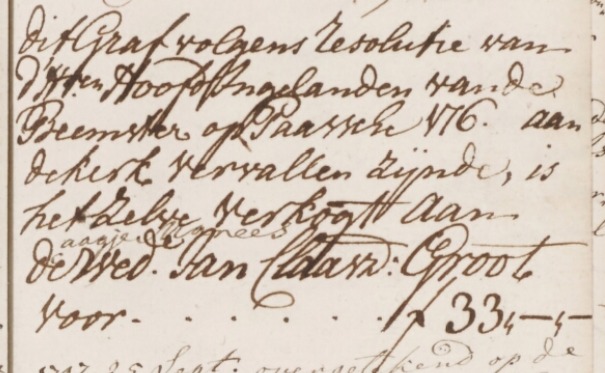 dit Graf volgens resolutie van
d'Hren Hoofd Ingelanden van de
Beemster op Paassche 1716. aan
de kerk vervallen zijnde, is
het zelve verkogt aan
aagje
de wed. Jan Claasz: Groot
voor . . . . . . f 33,,—,,—
25 Sept. overgetekend op de